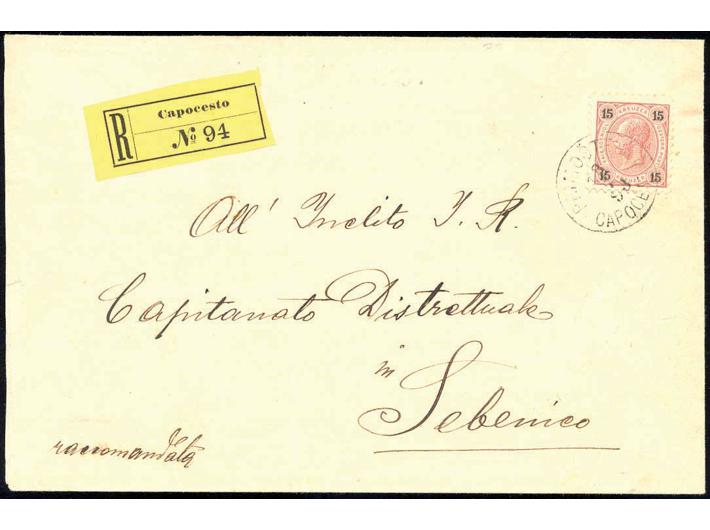 R
Capocesto
№ 94
15 15
KREUZER
15 15
PRIMOŠTEN
CAPOCESTO
All' Inclito I. R.
Capitanato Distrettuale
in
Sebenico
raccomandata